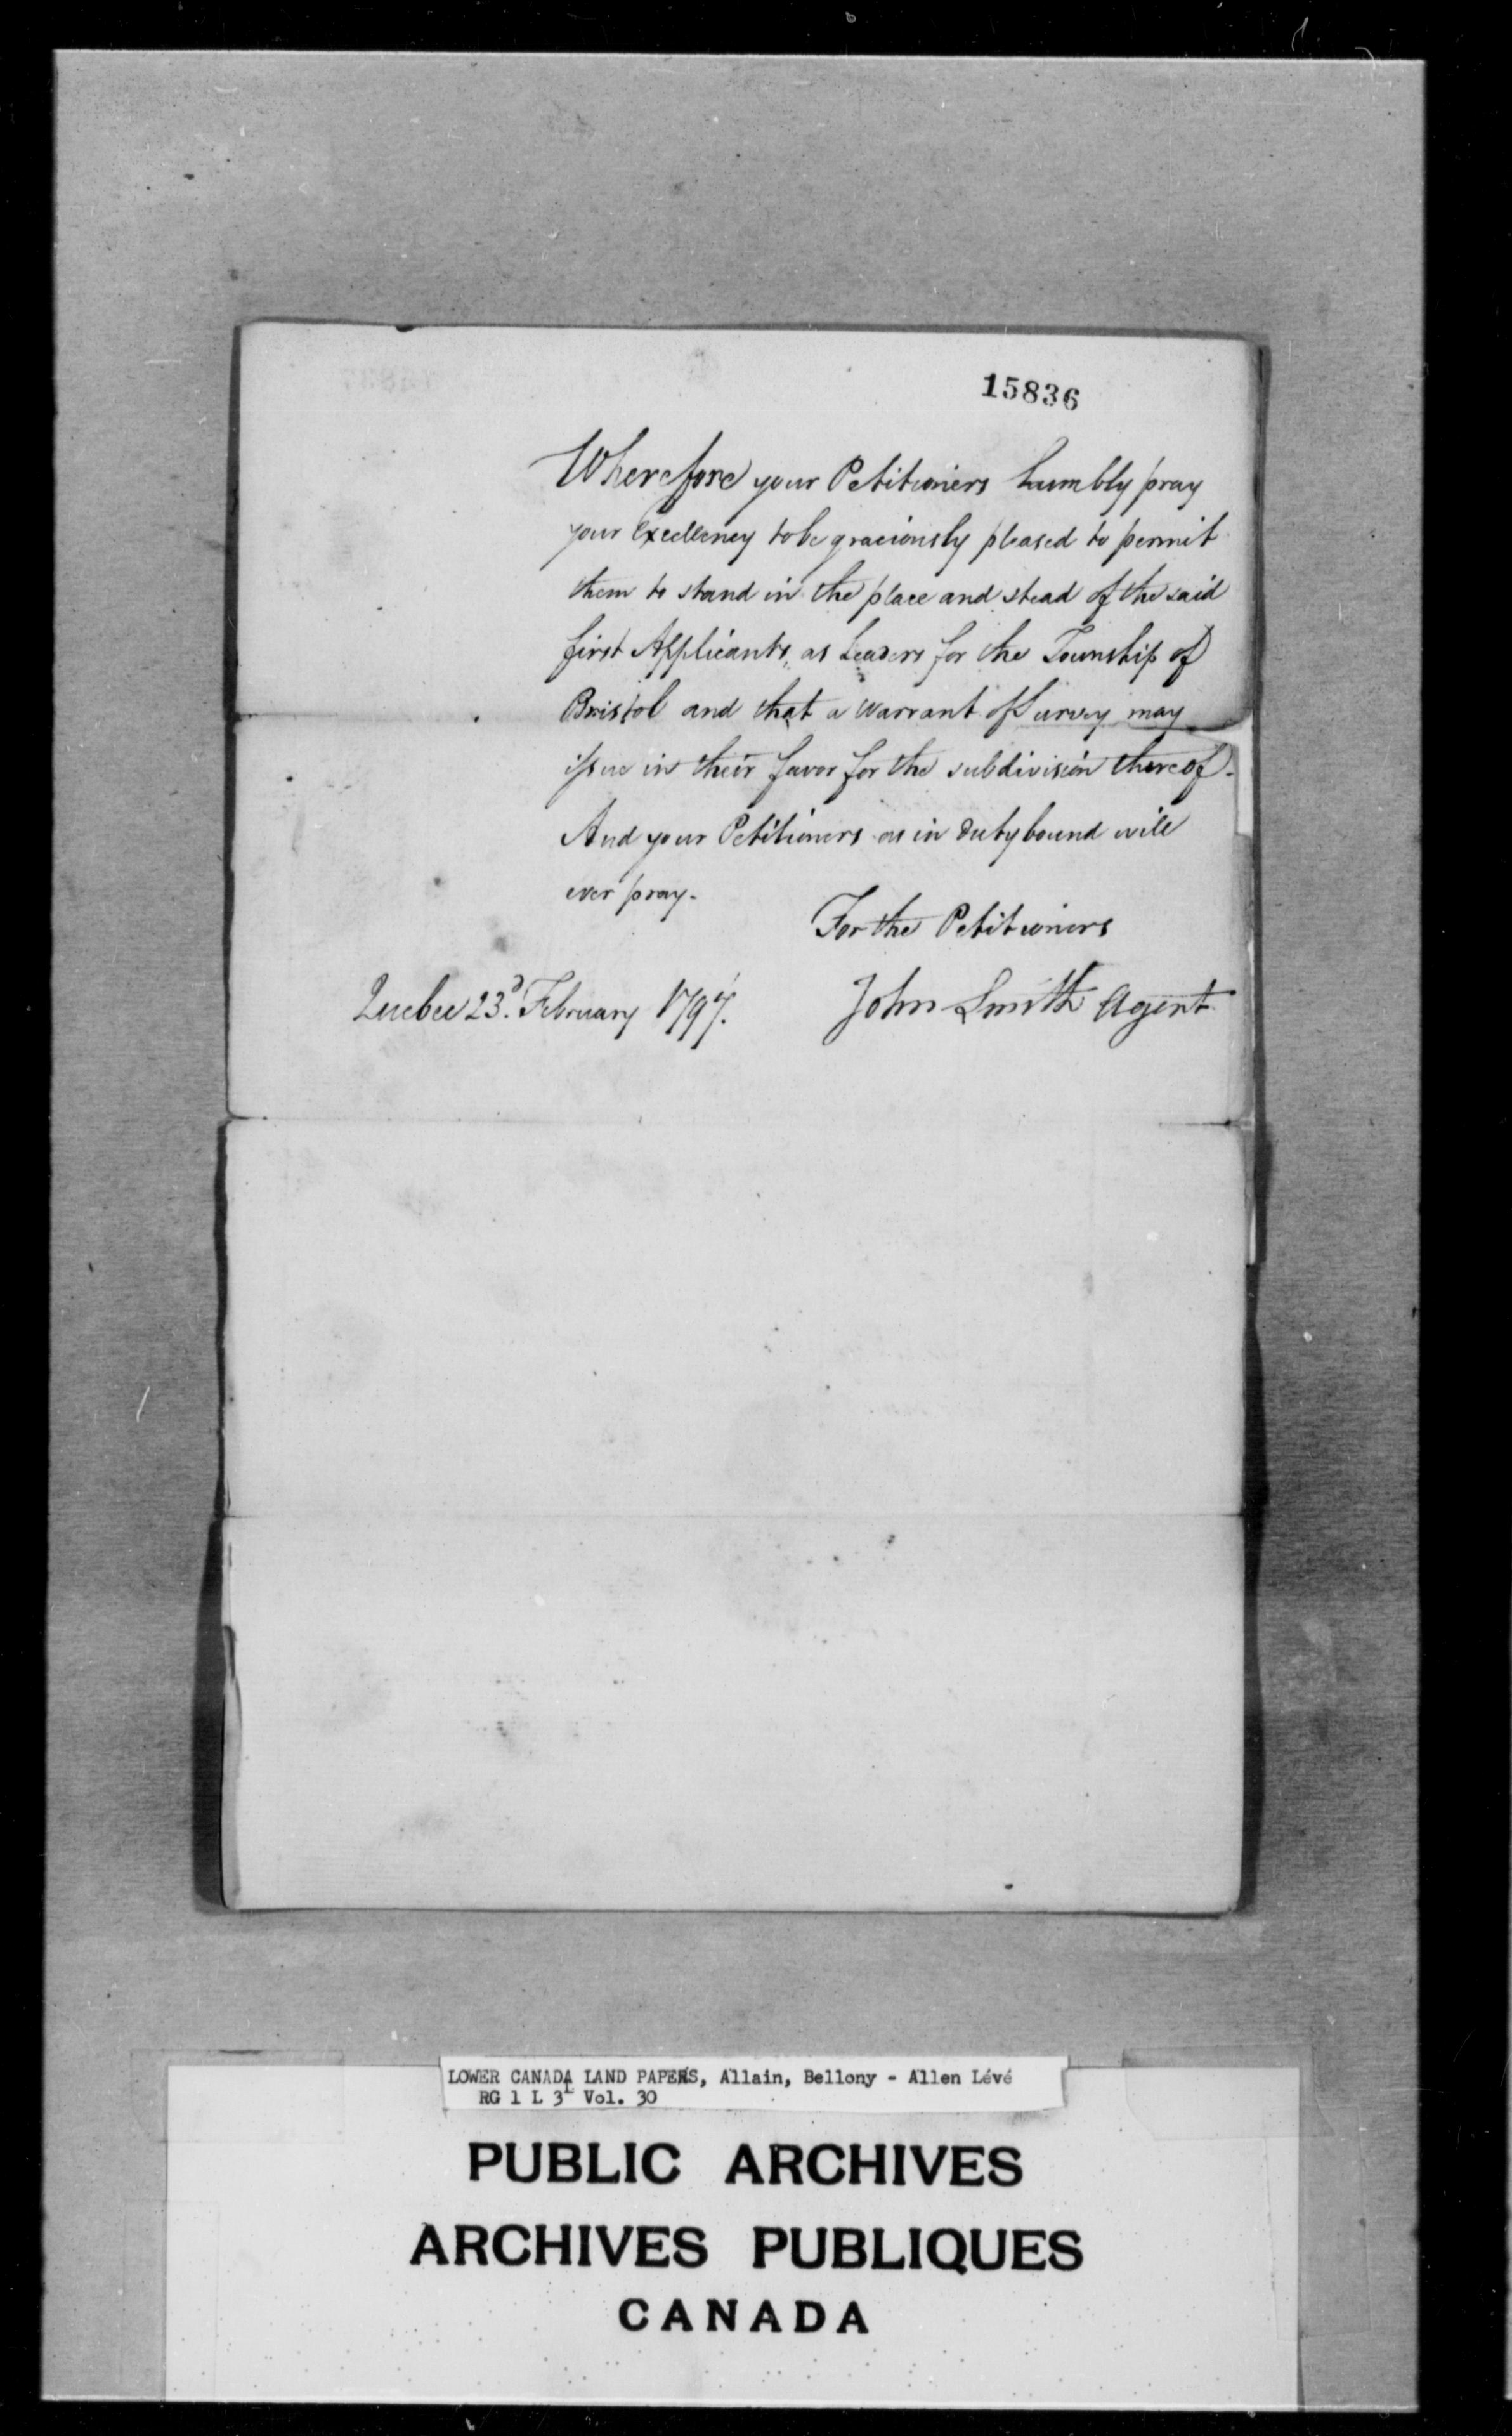 15836
Wherefore your Petitioners humbly pray
your Excellency to be graciously pleased to permit
them to stand in the place and stead of the said
first Applicants, as Leaders for the Township of
Bristol and that a Warrant of Survey may
issue in their favor for the subdivision thereof.
And your Petitioners as in duty bound will
ever pray.
For the Petitioners
Quebec 23d. February 1797. John Smith Agent
LOWER CANADA LAND PAPERS, Allain, Bellony - Allen Lévé
RG 1 L 3L Vol. 30
PUBLIC ARCHIVES
ARCHIVES PUBLIQUES
CANADA